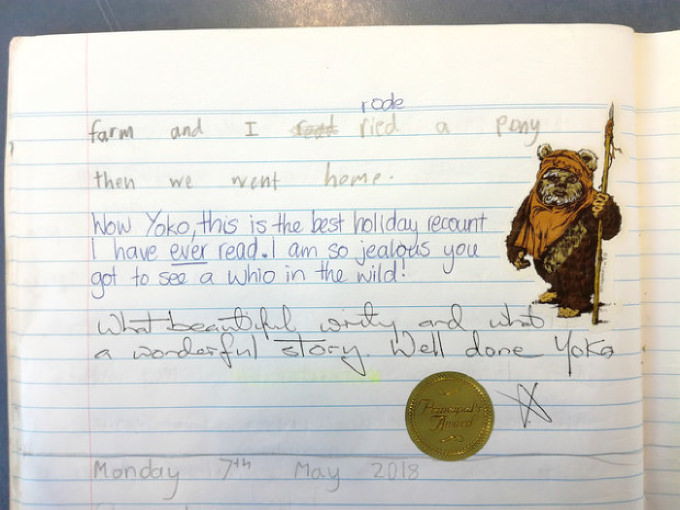 rode
farm and I ried a pony
then we went home.
Wow Yoko, this is the best holiday recount
I have ever read. I am so jealous you
got to see a whio in the wild!
What beautiful writy and what
a wonderful story. Well done Yoko
Principal's
Award
Monday 7th May 2018